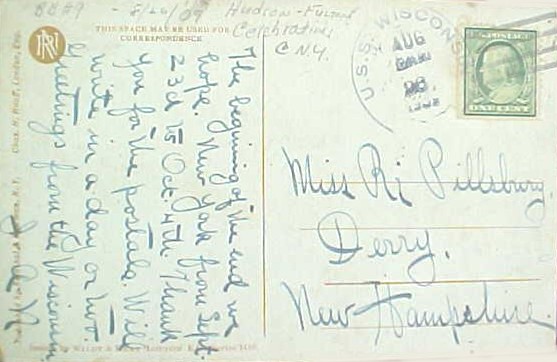 BB#9 - 8/26/09 Hudson-Fulton
Celebration
C N.Y.
THIS SPACE MAY BE USED FOR
CORRESPONDENCE
U.S.S. WISCONSIN
AUG
26
The begining of the end we
hope. New York from Sept.
23d to Oct. 4th. Thank
you for the postals. Will
write in a day or two
Greetings from the Wisconsin
Miss Ri Pillsbury.
Derry.
New Hampshire.